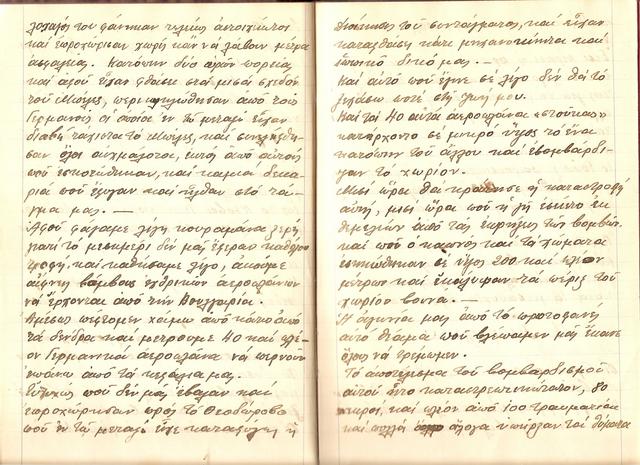 λοχαγός του φάνηκαν τυχαίως αυτοκίνητα
και επροχώρησαν χωρίς καν να λάβουν μέτρα
ασφαλείας. Κατόπιν δύο ωρών πορεία,
και αφού είχαν φθάσει στα μισά σχεδόν
του περιεκυκλώθησαν από τους
Γερμανούς οι οποίοι εν τω μεταξύ είχαν
διαβή και συνελήφθη-
σαν όλοι αιχμάλωτοι, εκτός από αυτούς
που εσκοτώθηκαν, και καμμιά δεκα-
ριά που έφυγαν και ήλθαν στο τάγ-
μα μας. —
Αφού φάγαμε λίγη κουραμάνα ξερή
γιατί το μεσημέρι δεν μας έφεραν καθόλου
τροφή, και καθήσαμε λίγο, ακούμε
αίφνης βόμβους εχθρικών αεροπλάνων
να έρχονται από την Βουλγαρία.
Αμέσως πέφτομεν χάμω από κάτω από
τα δένδρα και μετρούμε 40 και πλέ-
ον Γερμανικά αεροπλάνα να περνούν
επάνω από τα κεφάλια μας.
Ευτυχώς που δεν μας έβαλαν και
επροχώρησαν προς το Θεοδώροβο
που εν τω μεταξύ είχε καταφύγει η
Διοίκησις του συντάγματος, και είχαν
καταφθάσει κάτι μηχανοκίνητα και
ιππικό δικό μας. —
Και αυτό που έγινε σε λίγο δεν θα το
ξεχάσω ποτέ στη ζωή μου.
Και τα 40 αυτά αεροπλάνα «στούκας»
κατήρχοντο σε μικρό ύψος το ένα
κατόπιν του άλλου και εβομβάρδι-
ζαν το χωρίον.
Μισή ώρα θα κράτησε η καταστροφή
αυτή, μισή ώρα που η γη εσείετο εκ
θεμελίων από τας εκρήξεις των βομβών.
και που ο καπνός και τα χώματα
εσηκώθηκαν σε ύψος 200 και πλέον
μέτρων και εκάλυψαν τα πέριξ του
χωρίου βουνά.
Η αγωνία μας από το πρωτοφανή
αυτό θέαμα που βλέπαμεν μας έκανε
όλους να τρέμωμεν.
Το αποτέλεσμα του βομβαρδισμού
αυτού ήτο καταστρεπτικώτατον, 80
νεκροί, και πλέον από 100 τραυματίαι
και πολλά άλογα υπήρξαν τα θύματα